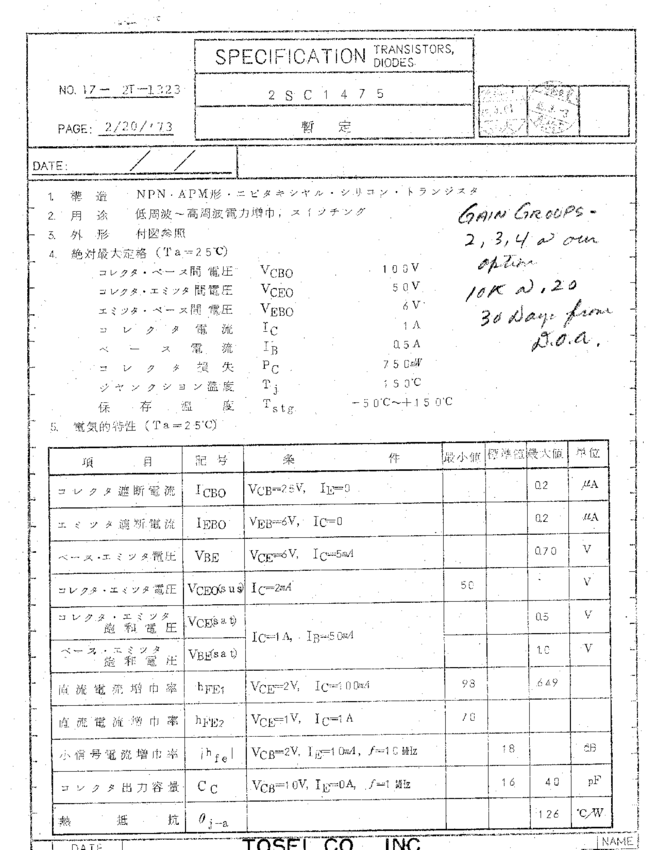 SPECIFICATION TRANSISTORS, DIODES
NO. 17-2T-1323
2SC1475
PAGE: 2/20/'73
暫定
DATE: / /
1. 構造 NPN・APM形・エピタキシャル・シリコン・トランジスタ
2. 用途 低周波~高周波電力増巾, スイツチング
3. 外形 付図参照
4. 絶対最大定格 (Ta=25℃)
コレクタ・ベース間電圧 VCBO 100V
コレクタ・エミツタ間電圧 VCEO 50V
エミツタ・ベース間電圧 VEBO 6V
コレクタ電流 IC 1A
ベース電流 IB 0.5A
コレクタ損失 PC 750mW
ジヤンクション温度 Tj 150℃
保存温度 Tstg -50℃~+150℃
GAIN GROUPS -
2, 3, 4 @ our
option
10K @ .20
30 Days from
D.O.A.
5. 電気的特性 (Ta=25℃)
項目 記号 条件 最小値 標準値 最大値 単位
コレクタ遮断電流 ICBO VCB=25V, IE=0 0.2 μA
エミツタ遮断電流 IEBO VEB=6V, IC=0 0.2 μA
ベース・エミツタ電圧 VBE VCE=6V, IC=5mA 0.70 V
コレクタ・エミツタ電圧 VCEO(sus) IC=2mA 50 V
コレクタ・エミツタ飽和電圧 VCE(sat) IC=1A, IB=50mA 0.5 V
ベース・エミツタ飽和電圧 VBE(sat) 1.0 V
直流電流増巾率 hFE1 VCE=2V, IC=100mA 98 649
直流電流増巾率 hFE2 VCE=1V, IC=1A 70
小信号電流増巾率 |hfe| VCB=2V, IE=10mA, f=10MHz 18 dB
コレクタ出力容量 CC VCB=10V, IE=0A, f=1MHz 16 40 pF
熱抵抗 θj-a 126 ℃/W
DATE TOSEI CO. INC NAME